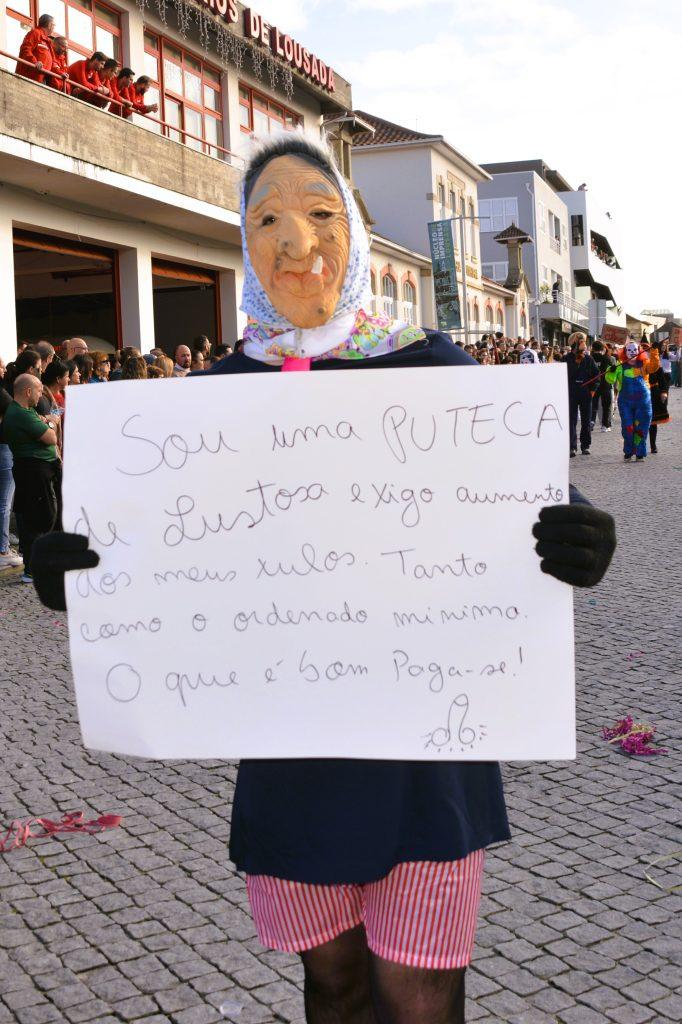 DE LOUSADA
NÚCLEO
IMPRENSA
Sou uma PUTECA
de Lustosa exigo aumento
dos meus xulos. Tanto
como o ordenado minimo.
O que é bom Paga-se!